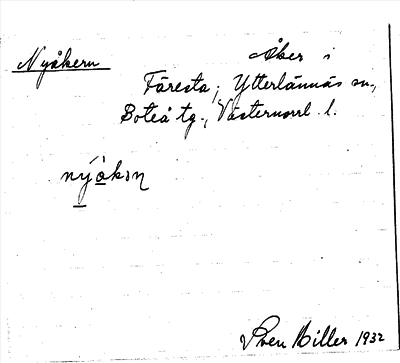 Nyåkern
Åker i
Färesta, Ytterlännäs sn.,
Boteå tg., Västernorrl. l.
nyåkɔn
Sven Hiller 1932